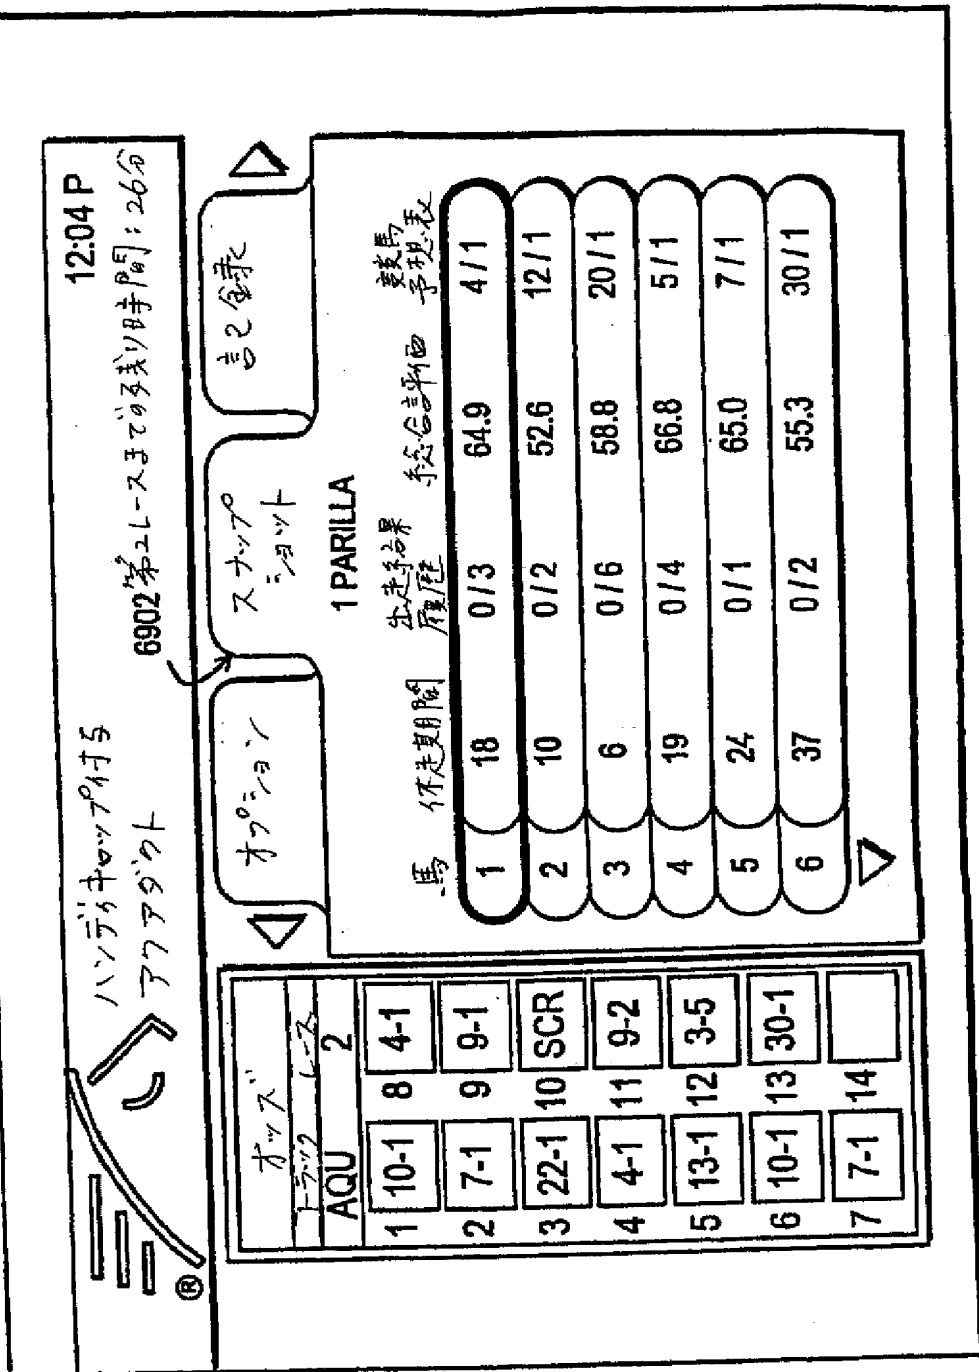 ハンディキャップ付与
アクアダクト
12:04 P
第2レースまでの残り時間：26分
6902
オッズ
トラック レース
AQU 2
1 10-1 8 4-1
2 7-1 9 9-1
3 22-1 10 SCR
4 4-1 11 9-2
5 13-1 12 3-5
6 10-1 13 30-1
7 7-1 14
オプション
スナップ
ショット
記録
1 PARILLA
馬 休走期間 出走結果履歴 総合評価 競馬予想表
1 18 0/3 64.9 4/1
2 10 0/2 52.6 12/1
3 6 0/6 58.8 20/1
4 19 0/4 66.8 5/1
5 24 0/1 65.0 7/1
6 37 0/2 55.3 30/1
®